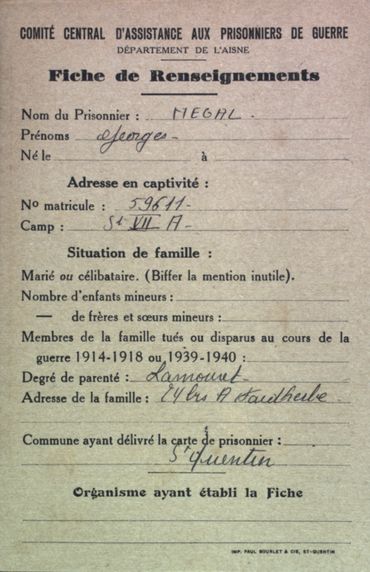 COMITÉ CENTRAL D'ASSISTANCE AUX PRISONNIERS DE GUERRE
DÉPARTEMENT DE L'AISNE
Fiche de Renseignements
Nom du Prisonnier : MEGAL.
Prénoms Georges
Né le à
Adresse en captivité :
No matricule : 59611
Camp : St VII A
Situation de famille :
Marié ou célibataire. (Biffer la mention inutile).
Nombre d'enfants mineurs :
— de frères et sœurs mineurs :
Membres de la famille tués ou disparus au cours de la
guerre 1914-1918 ou 1939-1940 :
Degré de parenté :
Adresse de la famille : Faidherbe
Commune ayant délivré la carte de prisonnier :
St Quentin
Organisme ayant établi la Fiche
IMP. PAUL BOURLET & CIE, ST-QUENTIN